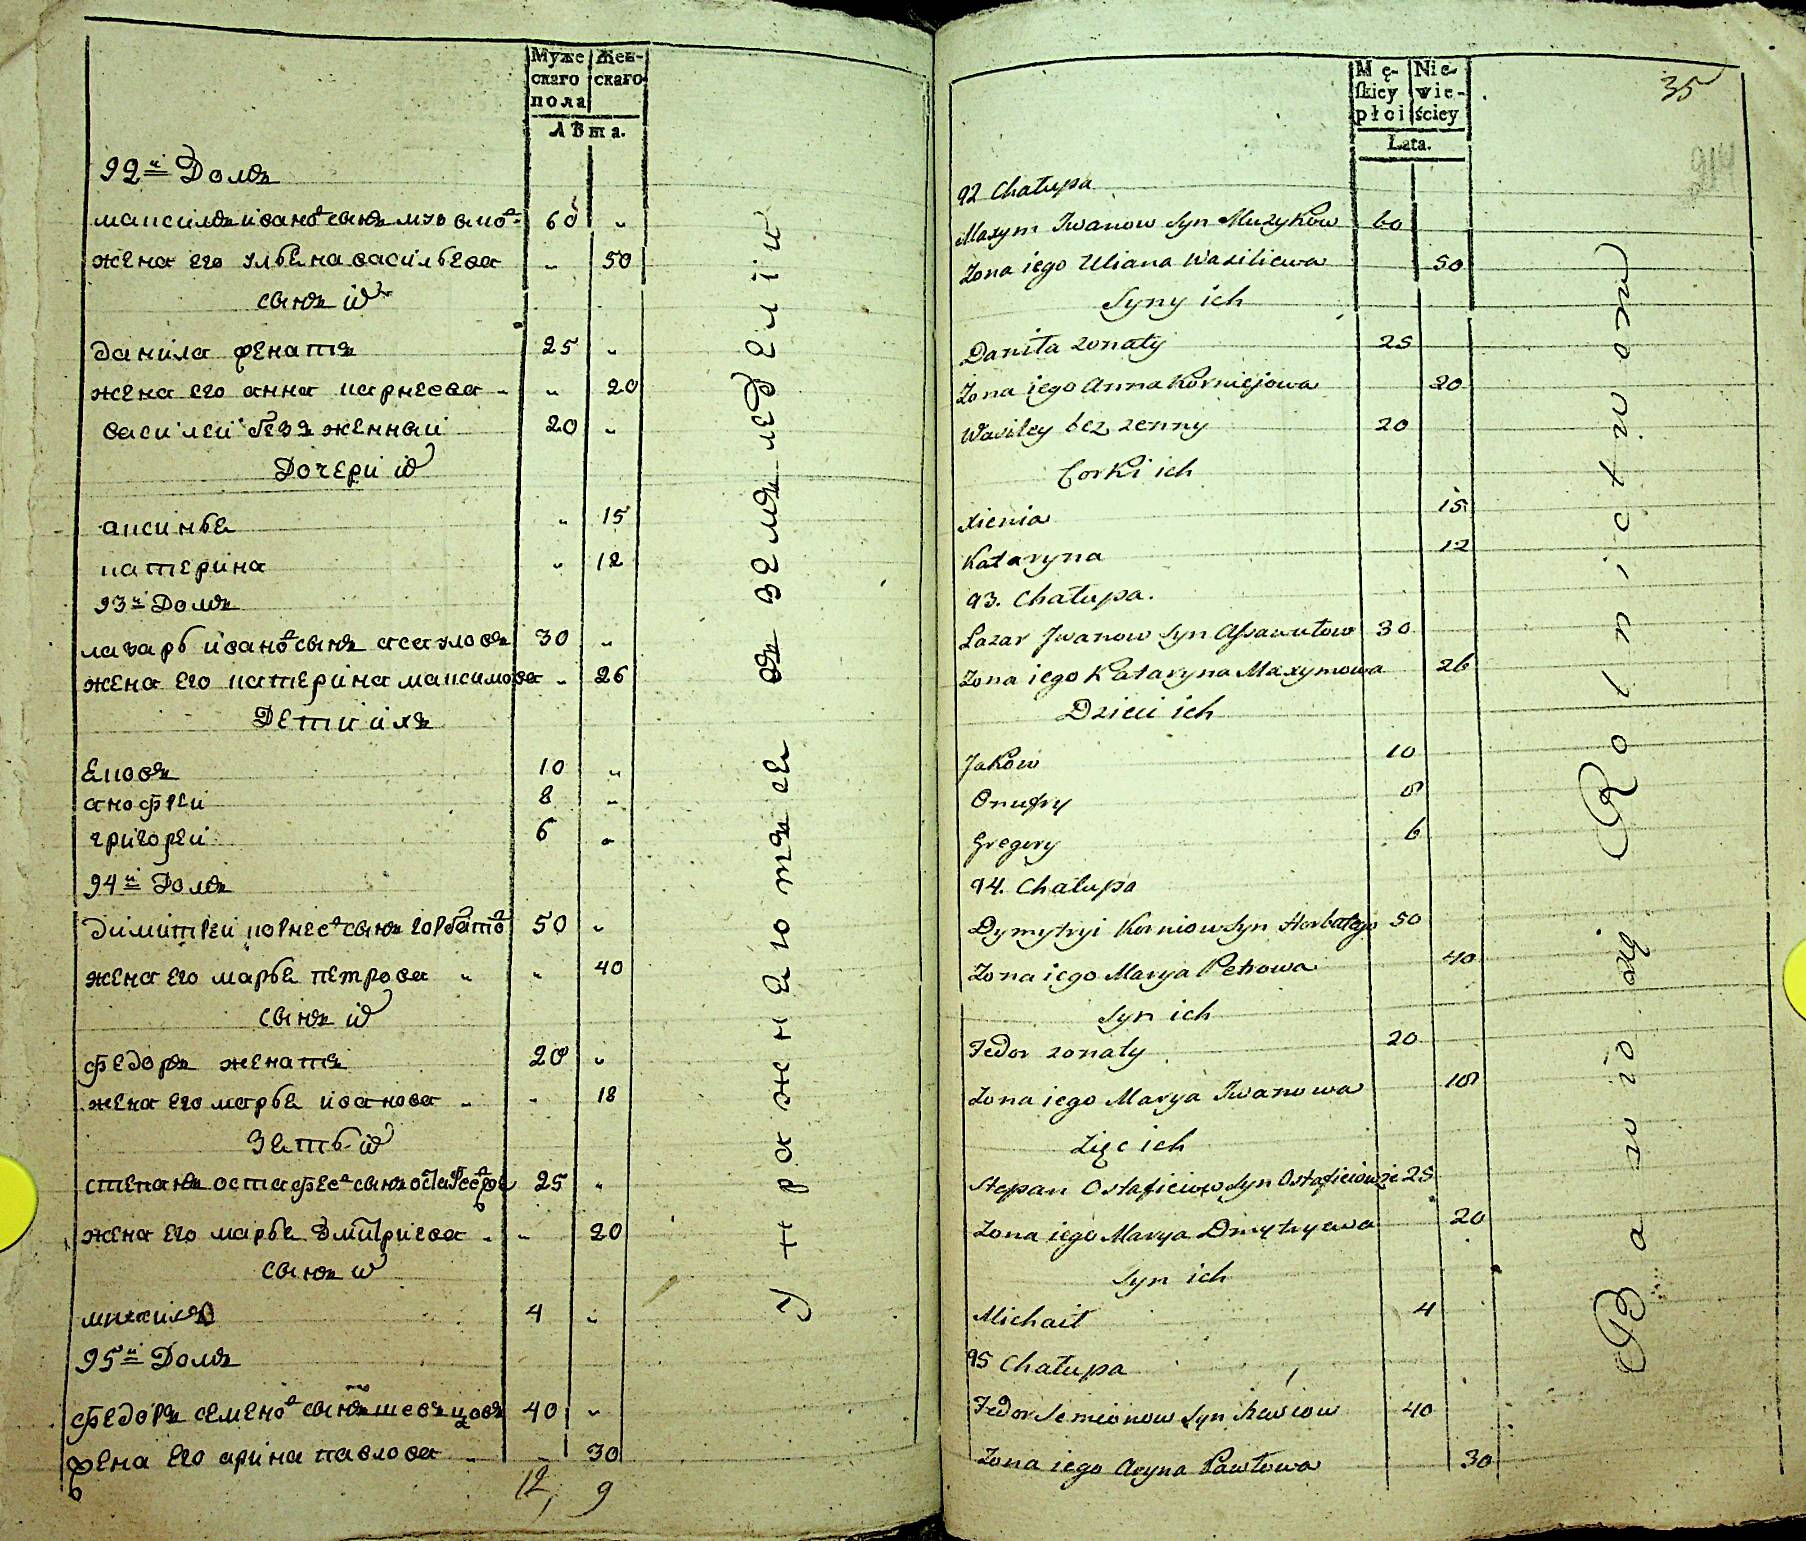 Муже Жен-
скаго скаго
пола
Лѣта.
92й Домъ
максимъ ивановъ сынъ музыковъ 60 „
жена его ульѣна васильева „ 50
сынъ их
данила женатъ 25 „
жена его анна карнеева „ 20
василей безъ женный 20 „
дочери их
аксинья „ 15
катерина „ 12
93й Домъ
лазарь ивановъ сынъ асауловъ 30 „
жена его катерина максимова „ 26
Дети ихъ
Яковъ 10 „
анофрей 8 „
григорей 6 „
94й Домъ
димитрей корнеевъ сынъ горбатов 50 „
жена его марья петрова „ 40
сынъ их
федоръ женатъ 20 „
жена его марья иванова „ 18
Зять их
степанъ остафеевъ сынъ 25 „
жена его марья Дмитриева „ 20
сынъ их
михаилъ 4 „
95й Домъ
федоръ семеновъ сынъ шевцовъ 40 „
жена его арина павлова „ 30
12, 9
Упражняются въ земледелiи
35
914
Mę- Nie-
ſkiey wie-
płci ściey
Lata.
92 Chałupa
Maxym Iwanow Syn Muzykow 60
Zona iego Uliana Wasiliewa 50
Syny ich
Daniła zonaty 25
Zona iego Anna Korniejowa 20
Wasiley bez zenny 20
Corki ich
Xienia 15
Kataryna 12
93. Chałupa.
Lazar Iwanow Syn Assawułow 30
Zona iego Kataryna Maxymowa 26
Dzieci ich
Jakow 10
Onufry 8
Gregory 6
94. Chałupa
Dymytryi Korniow Syn Horbatego 50
Zona iego Marya Petrowa 40
Syn ich
Fedor zonaty 20
Zona iego Marya Iwanowa 18
Zięc ich
Stepan Ostafieiow Syn 25
Zona iego Marya Dmytryewa 20
Syn ich
Michaił 4
95 Chałupa
Fedor Semionow Syn 40
Zona iego Aryna Pawłowa 30
Bawią się Rolnictwom